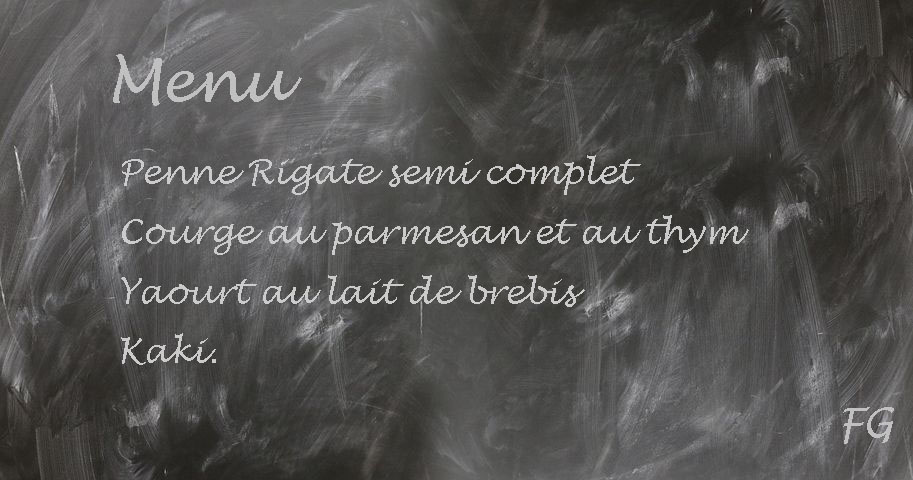 Menu
Penne Rigate semi complet
Courge au parmesan et au thym
Yaourt au lait de brebis
Kaki.
FG